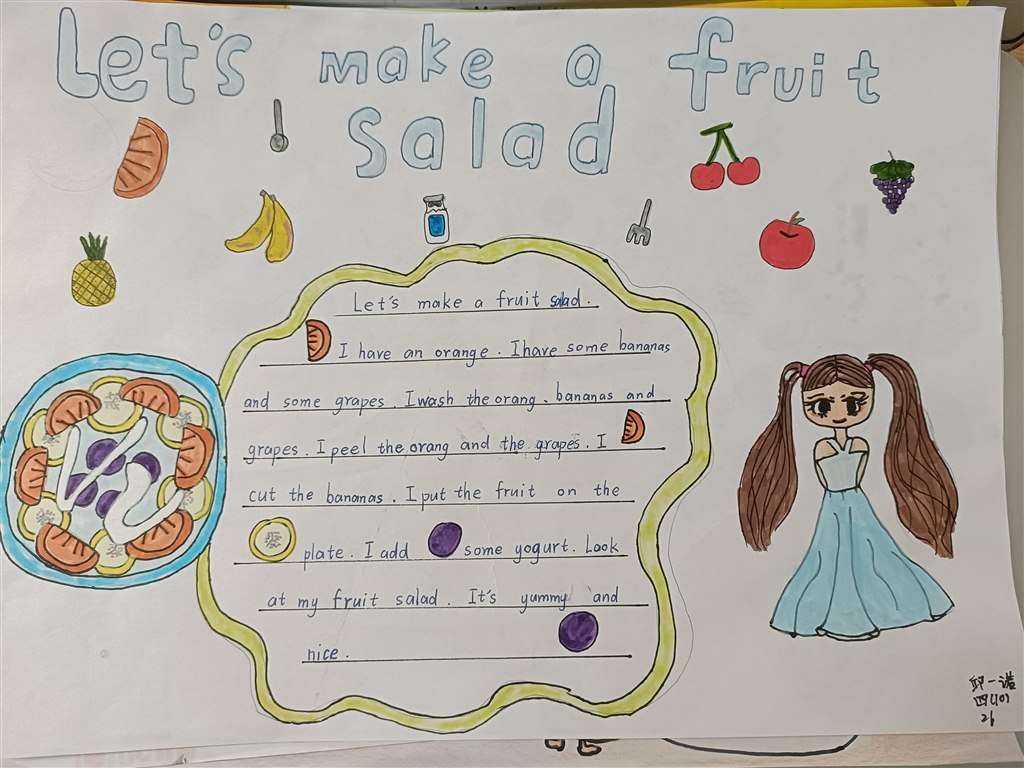 Let's make a fruit
salad
Let's make a fruit salad.
I have an orange. I have some bananas
and some grapes. I wash the orang. bananas and
grapes. I peel the orang and the grapes. I
cut the bananas. I put the fruit on the
plate. I add some yogurt. Look
at my fruit salad. It's yummy and
nice.
一诺
21